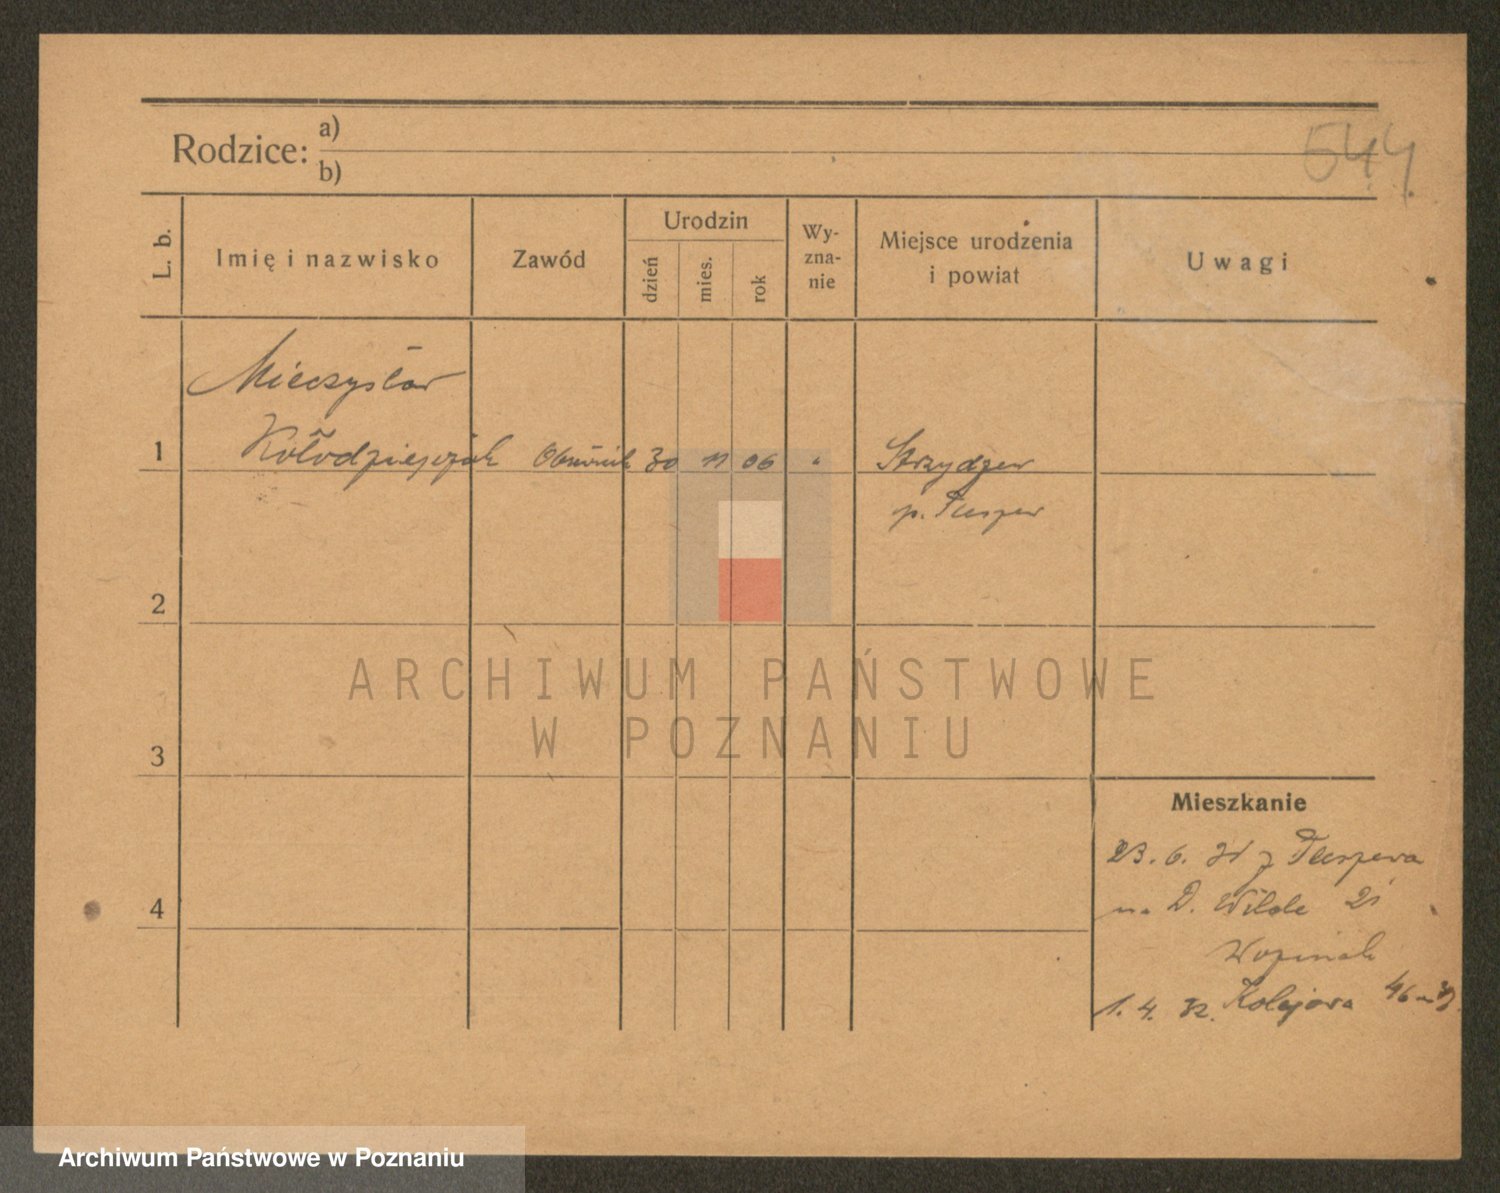 544.
Rodzice: a)
b)
L. b.
Imię i nazwisko
Zawód
Urodzin
dzień
mies.
rok
Wy-
zna-
nie
Miejsce urodzenia
i powiat
Uwagi
Mieczysław
1 Kołodziejczak 30 11 06 " Strzydzew
p. Pleszew
2
ARCHIWUM PAŃSTWOWE
W POZNANIU
3
Mieszkanie
23. 6. 31 z Pleszewa
4
na D. Wilda 21
Woźniak
1. 4. 32. Kolejowa 46
Archiwum Państwowe w Poznaniu